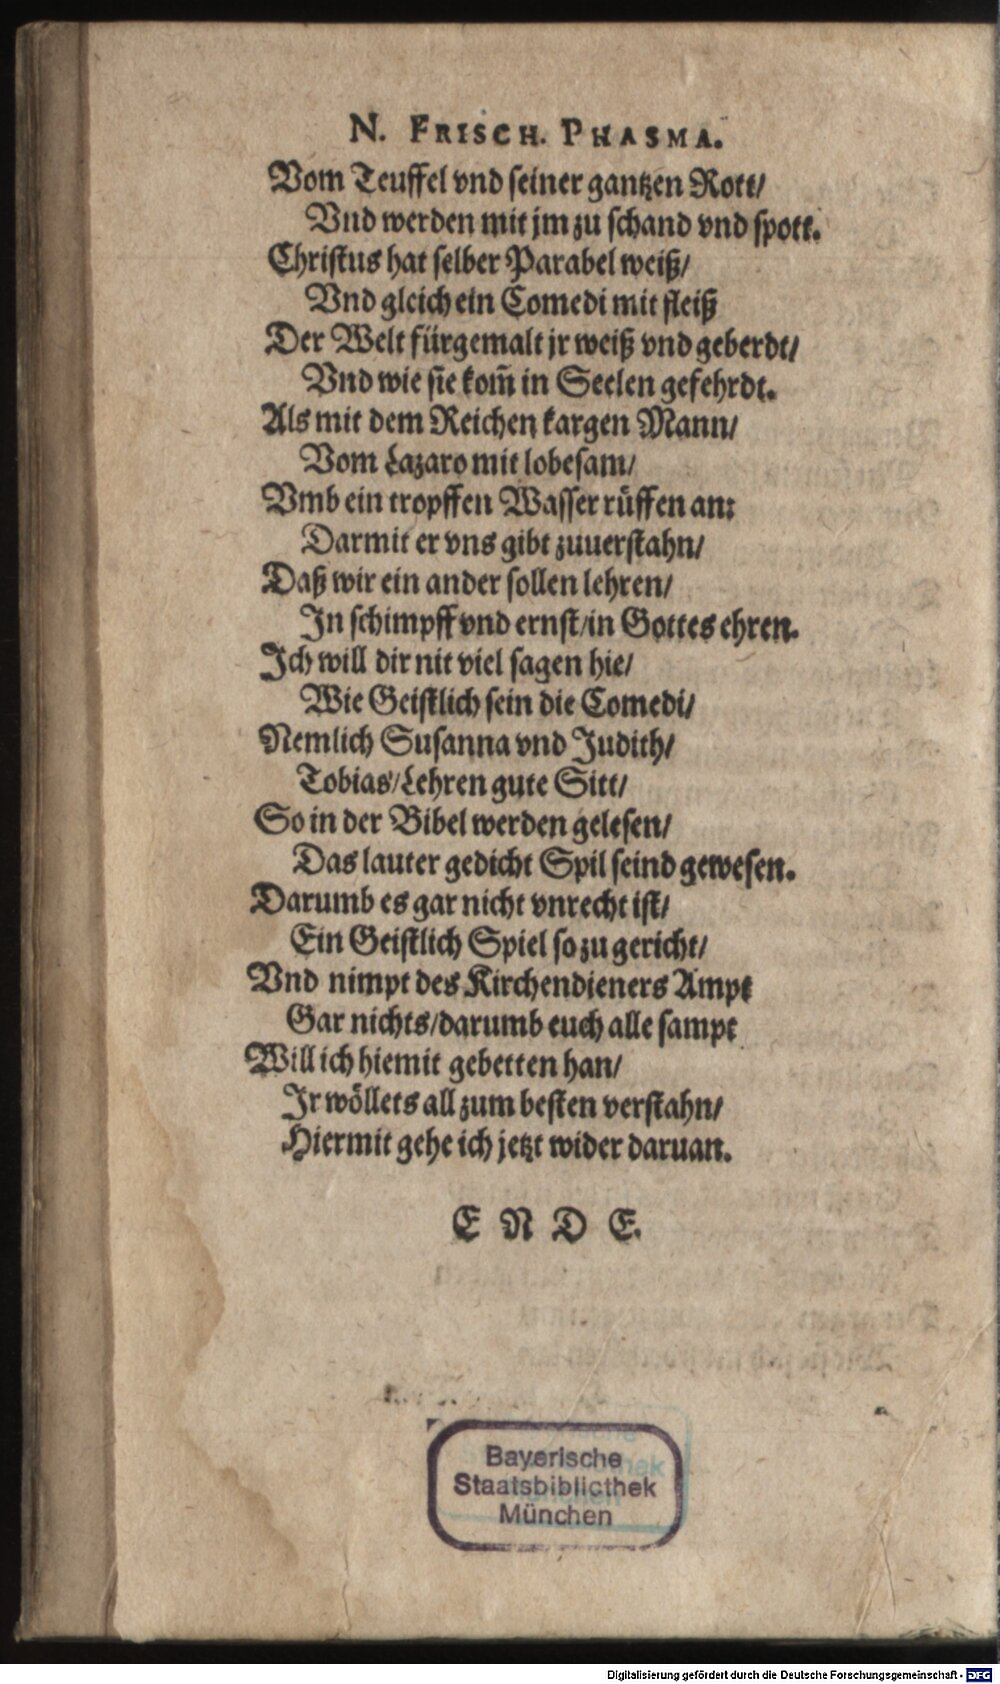 N. FRISCH. PHASMA.
Vom Teuffel vnd seiner gantzen Rott/
Vnd werden mit jm zu schand vnd spott.
Christus hat selber Parabel weiß/
Vnd gleich ein Comedi mit fleiß
Der Welt fürgemalt jr weiß vnd geberdt/
Vnd wie sie kom̃ in Seelen gefehrdt.
Als mit dem Reichen kargen Mann/
Vom Lazaro mit lobesam/
Vmb ein tropffen Wasser rüffen an:
Darmit er vns gibt zuuerstahn/
Daß wir ein ander sollen lehren/
In schimpff vnd ernst/in Gottes ehren.
Ich will dir nit viel sagen hie/
Wie Geistlich sein die Comedi/
Nemlich Susanna vnd Judith/
Tobias/Lehren gute Sitt/
So in der Bibel werden gelesen/
Das lauter gedicht Spil seind gewesen.
Darumb es gar nicht vnrecht ist/
Ein Geistlich Spiel so zu gericht/
Vnd nimpt des Kirchendieners Ampt
Gar nichts/darumb euch alle sampt
Will ich hiemit gebetten han/
Ir wöllets all zum besten verstahn/
Hiermit gehe ich jetzt wider daruan.
E N D E.
Bayerische
Staatsbibliothek
München
Digitalisierung gefördert durch die Deutsche Forschungsgemeinschaft - DFG